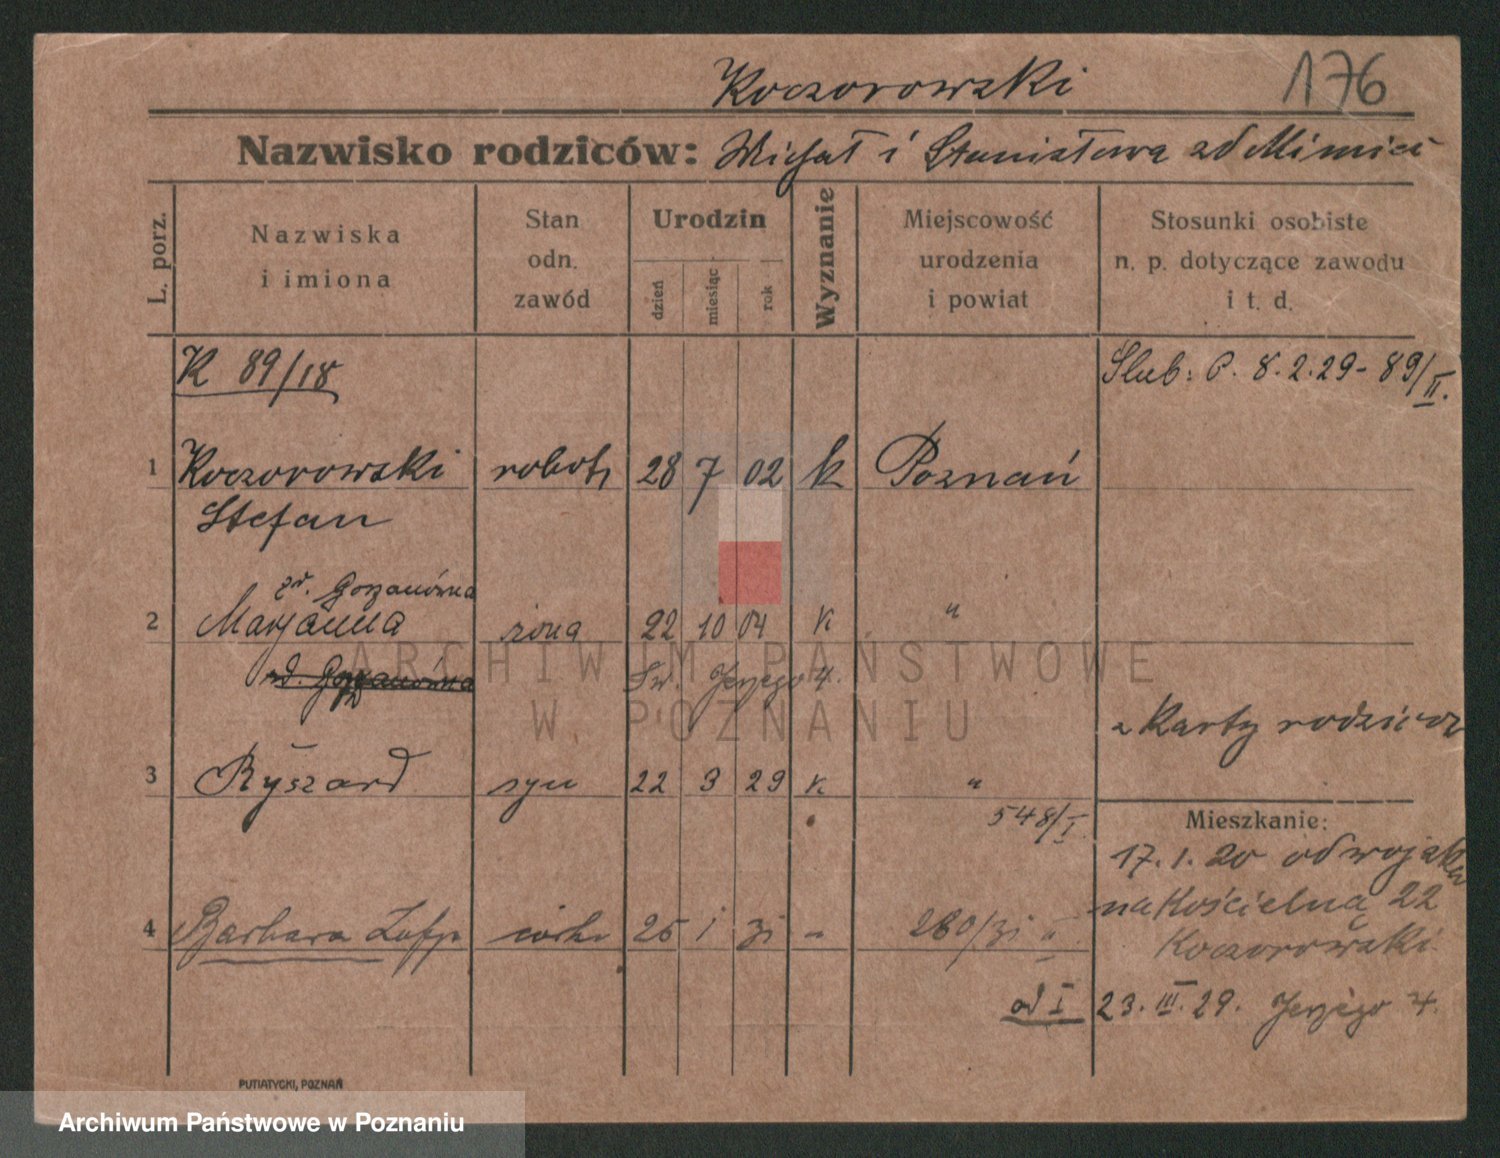 Koczorowski 176
Nazwisko rodziców: Michał i Stanisława zd
L. porz.
Nazwiska
i imiona
Stan
odn.
zawód
Urodzin
dzień
miesiąc
rok
Wyznanie
Miejscowość
urodzenia
i powiat
Stosunki osobiste
n. p. dotyczące zawodu
i t. d.
K 89/18
Ślub: P. 8.2.29 - 89/II.
1 Koczorowski robotn 28 7 02 k Poznań
Stefan
zd. Gorzanówna
2 Maryanna żona 22 10 04 k "
zd. Gorzanówna Św. Jerzego 4.
z Karty rodziców
3 Ryszard syn 22 3 29 k "
548/I.
Mieszkanie:
17.1.20 od wojska
na Kościelna 22
4 Barbara Zofja córka 25 1 31 " 260/31 "
Koczorowski
od I 23.III.29. Jerzego 4.
PUTIATYCKI, POZNAŃ
ARCHIWUM PAŃSTWOWE
W POZNANIU
Archiwum Państwowe w Poznaniu